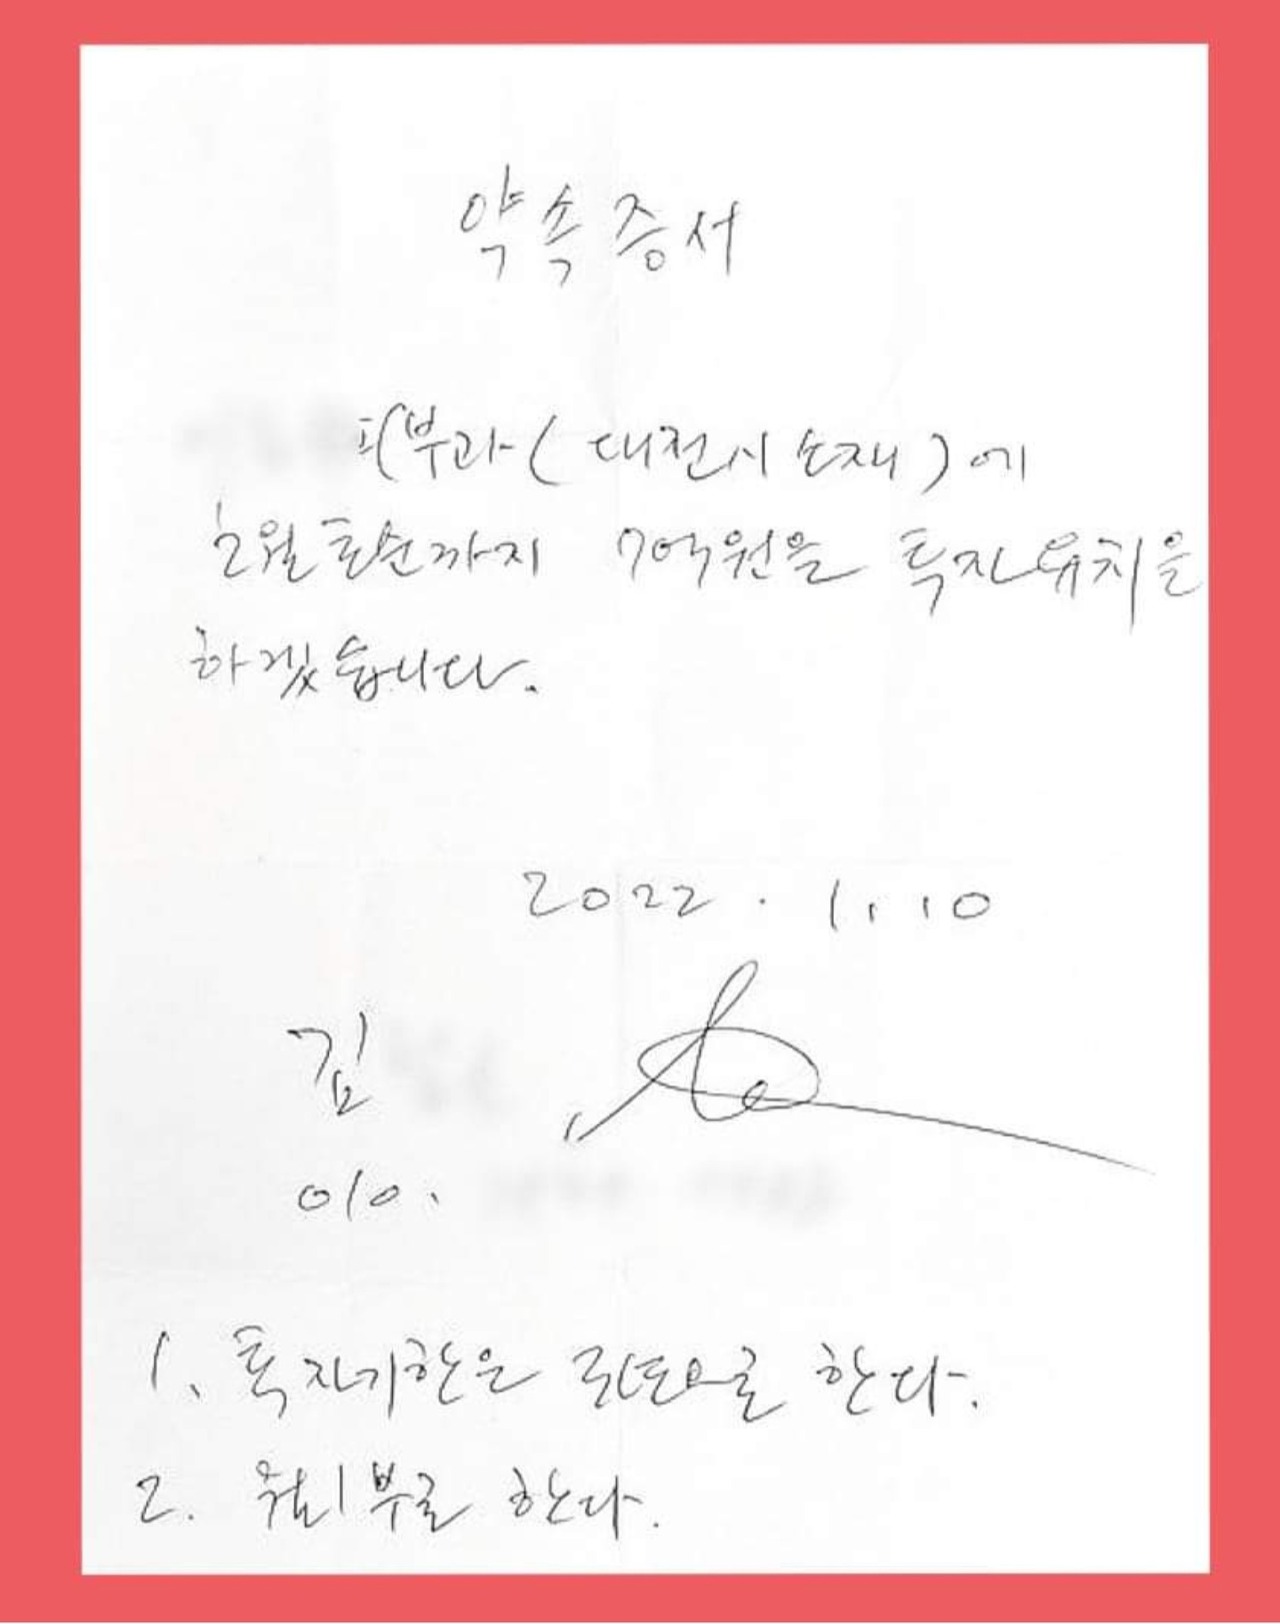 약속증서
피부과 (대전시 소재) 에
2월 초순까지 7억원을 투자유치을
하겠습니다.
2022. 1. 10
김
010.
1. 투자기한은 3년으로 한다.
2. 월1부로 한다.